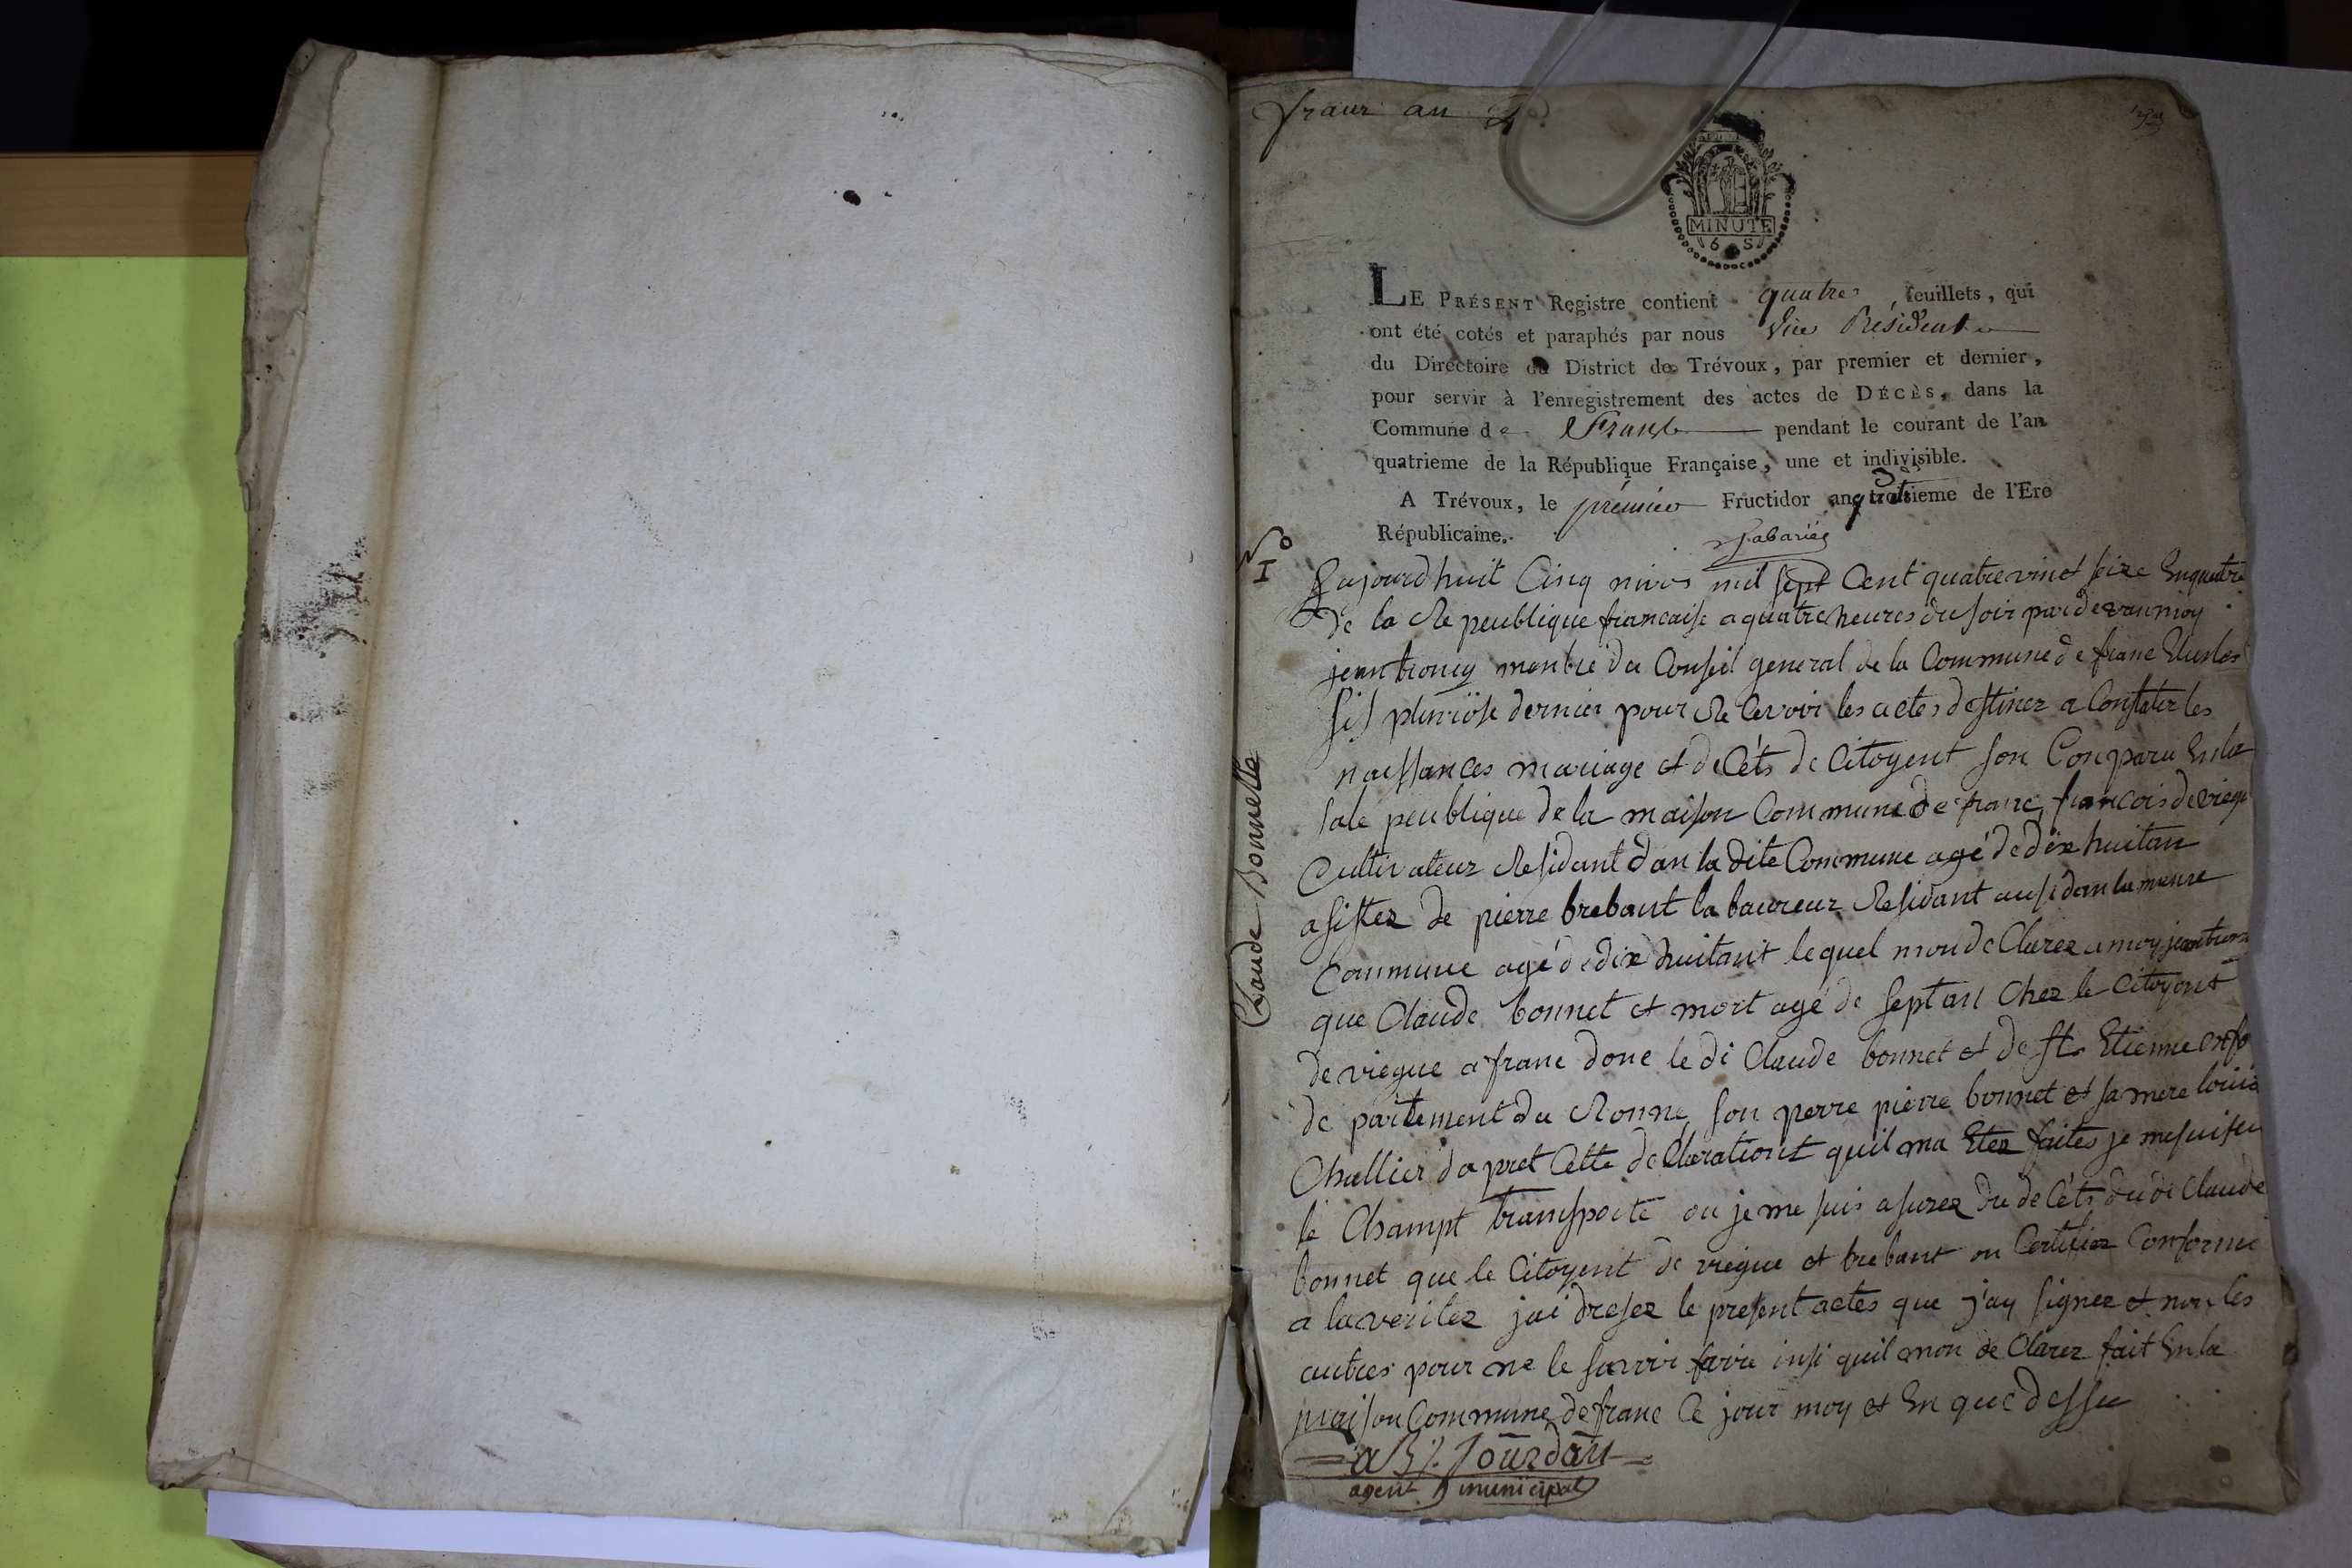 franc an 4
MINUTE
6 S
LE PRÉSENT Registre contient quatre feuillets, qui
ont été cotés et paraphés par nous Vice Président
du Directoire du District de Trévoux, par premier et dernier,
pour servir à l'enregistrement des actes de DÉCÈS, dans la
Commune de pendant le courant de l'an
quatrieme de la République Française, une et indivisible.
A Trévoux, le premier Fructidor an de l'Ere
Républicaine.
No
1
Claude Bonnette
aujourdhuit Cinq nivos mil sept Cent quatrevint seize En quatre
de la Republique francaise a quatre heures du soir par devan moy
jean monbre du Conseil general de la Commune de franc
pluviose dernier pour Recevoir les actes destinez a Constater les
naissances mariage et decéts de Citoyent son Conparu Enla
sale peublique de la maison Commune de franc francois deviegue
Cultivateur Residant dan la dite Commune agé de dix huitan
asistez de pierre brebant labaureur Residant ausi dan la meme
Commune agé de dix huitant lequel mon de Clarez a moy jean
que Claude bonnet et mort agé de septan Chez le Citoyent
deviegue a franc donc le di Claude bonnet et de st Etienne
de partement du Ronne son perre pierre bonnet et sa mere
Challier da pret Cette de Clarationt quil ma Etez faites je me suis
le Champt transporte ou je me suis asurez du de Céts du di Claude
bonnet que le Citoyent de viegue et brebant on Certifiez Conforme
a la veritez jai dresez le present actes que j'ay signez et non les
autres pour ne le savoir faire insi quil mon de Clarez fait En la
maison Commune de franc Ce jour moy et En que dessu
Jourdan
agent municipal